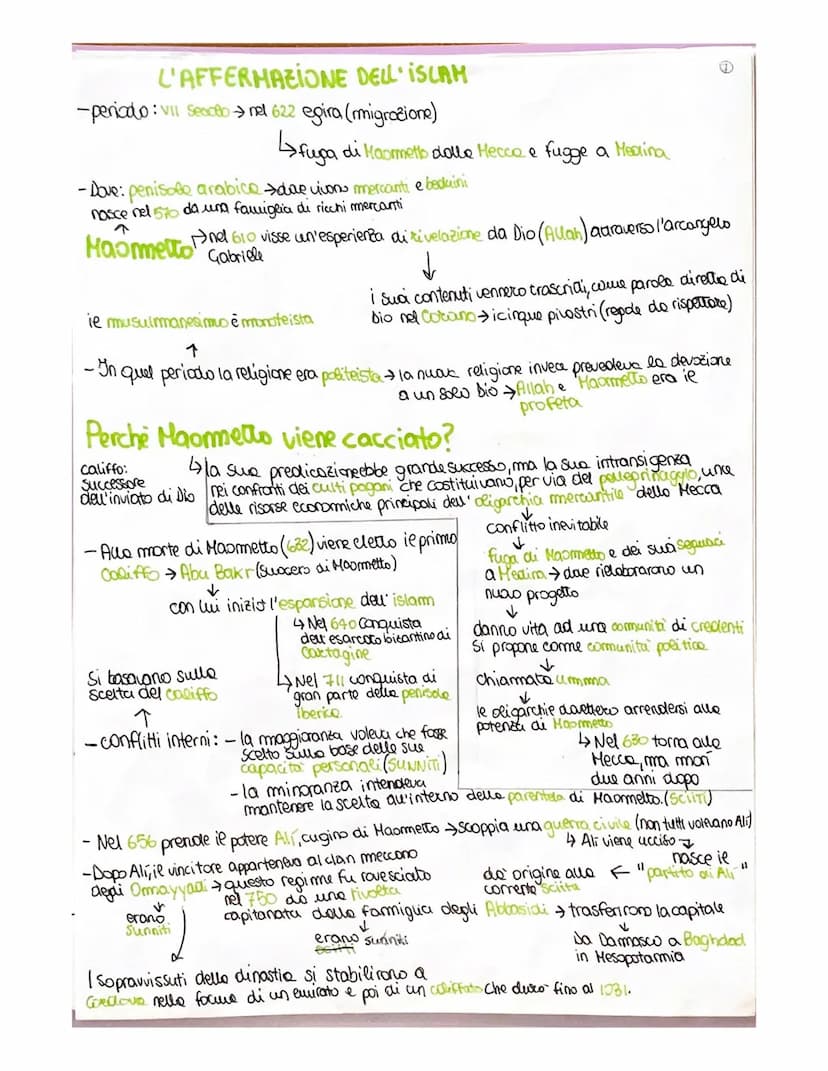 ①
L'AFFERMAZIONE DELL'ISLAM
- periodo: VII Secolo → nel 622 egira (migrazione)
↳ fuga di Maometto dalla Mecca e fugge a Medina
- Dove: penisola arabica → dove vivono mercanti e beduini
nasce nel 570 da una famiglia di ricchi mercanti
↑
Maometto ↱ nel 610 visse un'esperienza di rivelazione da Dio (Allah) attraverso l'arcangelo
Gabriele
↓
i suoi contenuti vennero trascritti, come parola diretta di
Dio nel Corano → i cinque pilastri (regole da rispettare)
il musulmanesimo è monoteista
↑
- In quel periodo la religione era politeista → la nuova religione invece prevedeva la devozione
a un solo Dio → Allah e Maometto era il
profeta
Perché Maometto viene cacciato?
↳ la sua predicazione ebbe grande successo, ma la sua intransigenza
nei confronti dei culti pagani che costituivano, per via del pellegrinaggio, una
delle risorse economiche principali dell'oligarchia mercantile della Mecca
↓
conflitto inevitabile
↓
fuga di Maometto e dei suoi seguaci
a Medina → dove rielaborarono un
nuovo progetto
↓
danno vita ad una comunità di credenti
si propone come comunità politica
↓
chiamata umma
↓
le oligarchie dovettero arrendersi alla
potenza di Maometto
↳ Nel 630 torna alla
Mecca, ma morì
due anni dopo
califfo:
successore
dell'inviato di Dio
- Alla morte di Maometto (632) viene eletto il primo
Califfo → Abu Bakr (suocero di Maometto)
↓
con lui iniziò l'espansione dell'islam
↳ Nel 640 conquista
dell'esarcato bizantino di
Cartagine
↳ Nel 711 conquista di
gran parte della penisola
Iberica
Si basavano sulla
scelta del Califfo
↑
- conflitti interni: - la maggioranza voleva che fosse
scelto sulla base delle sue
capacità personali (SUNNITI)
- la minoranza intendeva
mantenere la scelta all'interno della parentela di Maometto. (SCIITI)
- Nel 656 prende il potere Alì, cugino di Maometto → scoppia una guerra civile (non tutti volevano Alì)
↳ Ali viene ucciso →
nasce il
"partito di Alì"
← da origine alla
corrente sciita
- Dopo Alì, il vincitore apparteneva al clan meccano
degli Ommayyadi → questo regime fu rovesciato
nel 750 da una rivolta
capitanata dalla famiglia degli Abbasidi → trasferirono la capitale
↓
erano
Sunniti
↓
erano sunniti
sciiti
↓
Da Damasco a Baghdad
in Mesopotamia
I sopravvissuti della dinastia si stabilirono a
Cordova nella forma di un emirato e poi di un califfato che durò fino al 1031.